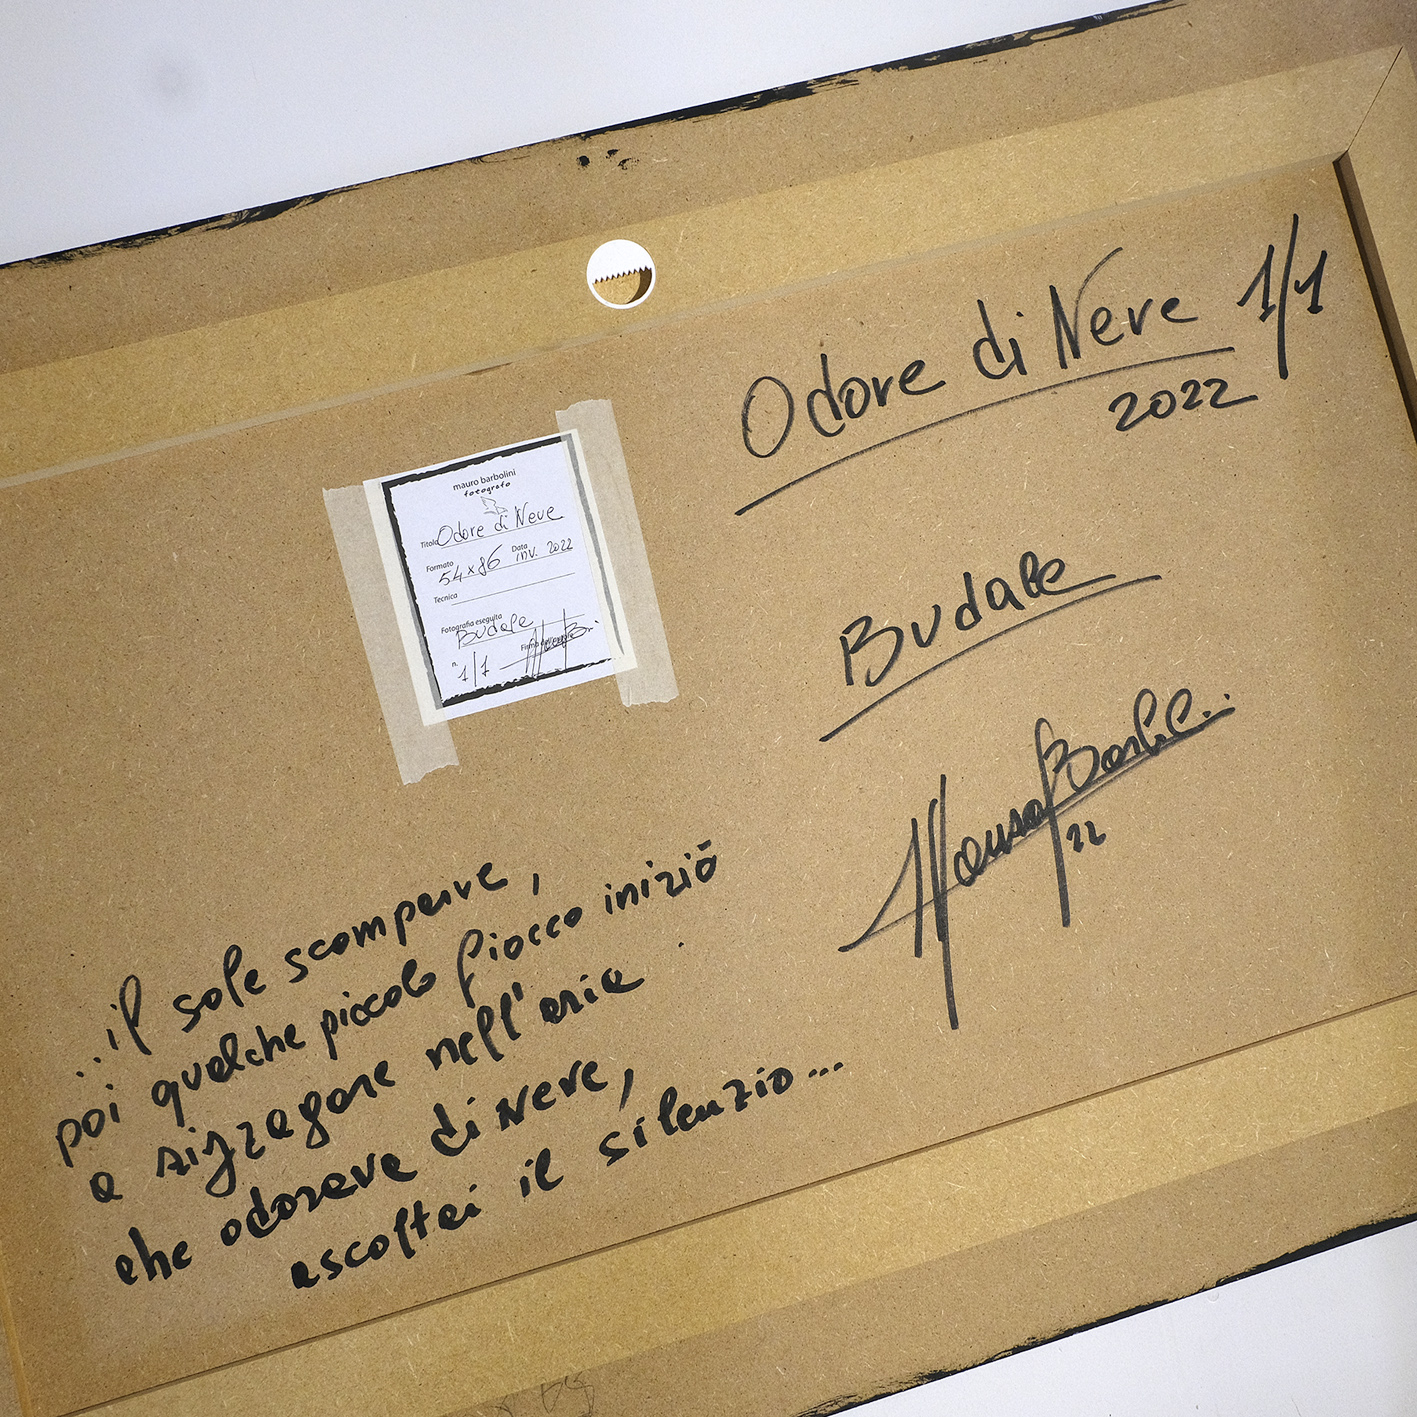 Odore di Neve 1/1
2022
mauro barbolini
fotografo
Titolo Odore di Neve
Formato 54x86 Data inv. 2022
Tecnica
Fotografia eseguita Budale
n. 1/1
Budale
Mauro Barb
22
...il sole scomparve,
poi qualche piccolo fiocco iniziò
a zigzagare nell'aria
che odorava di Neve,
ascoltai il silenzio...